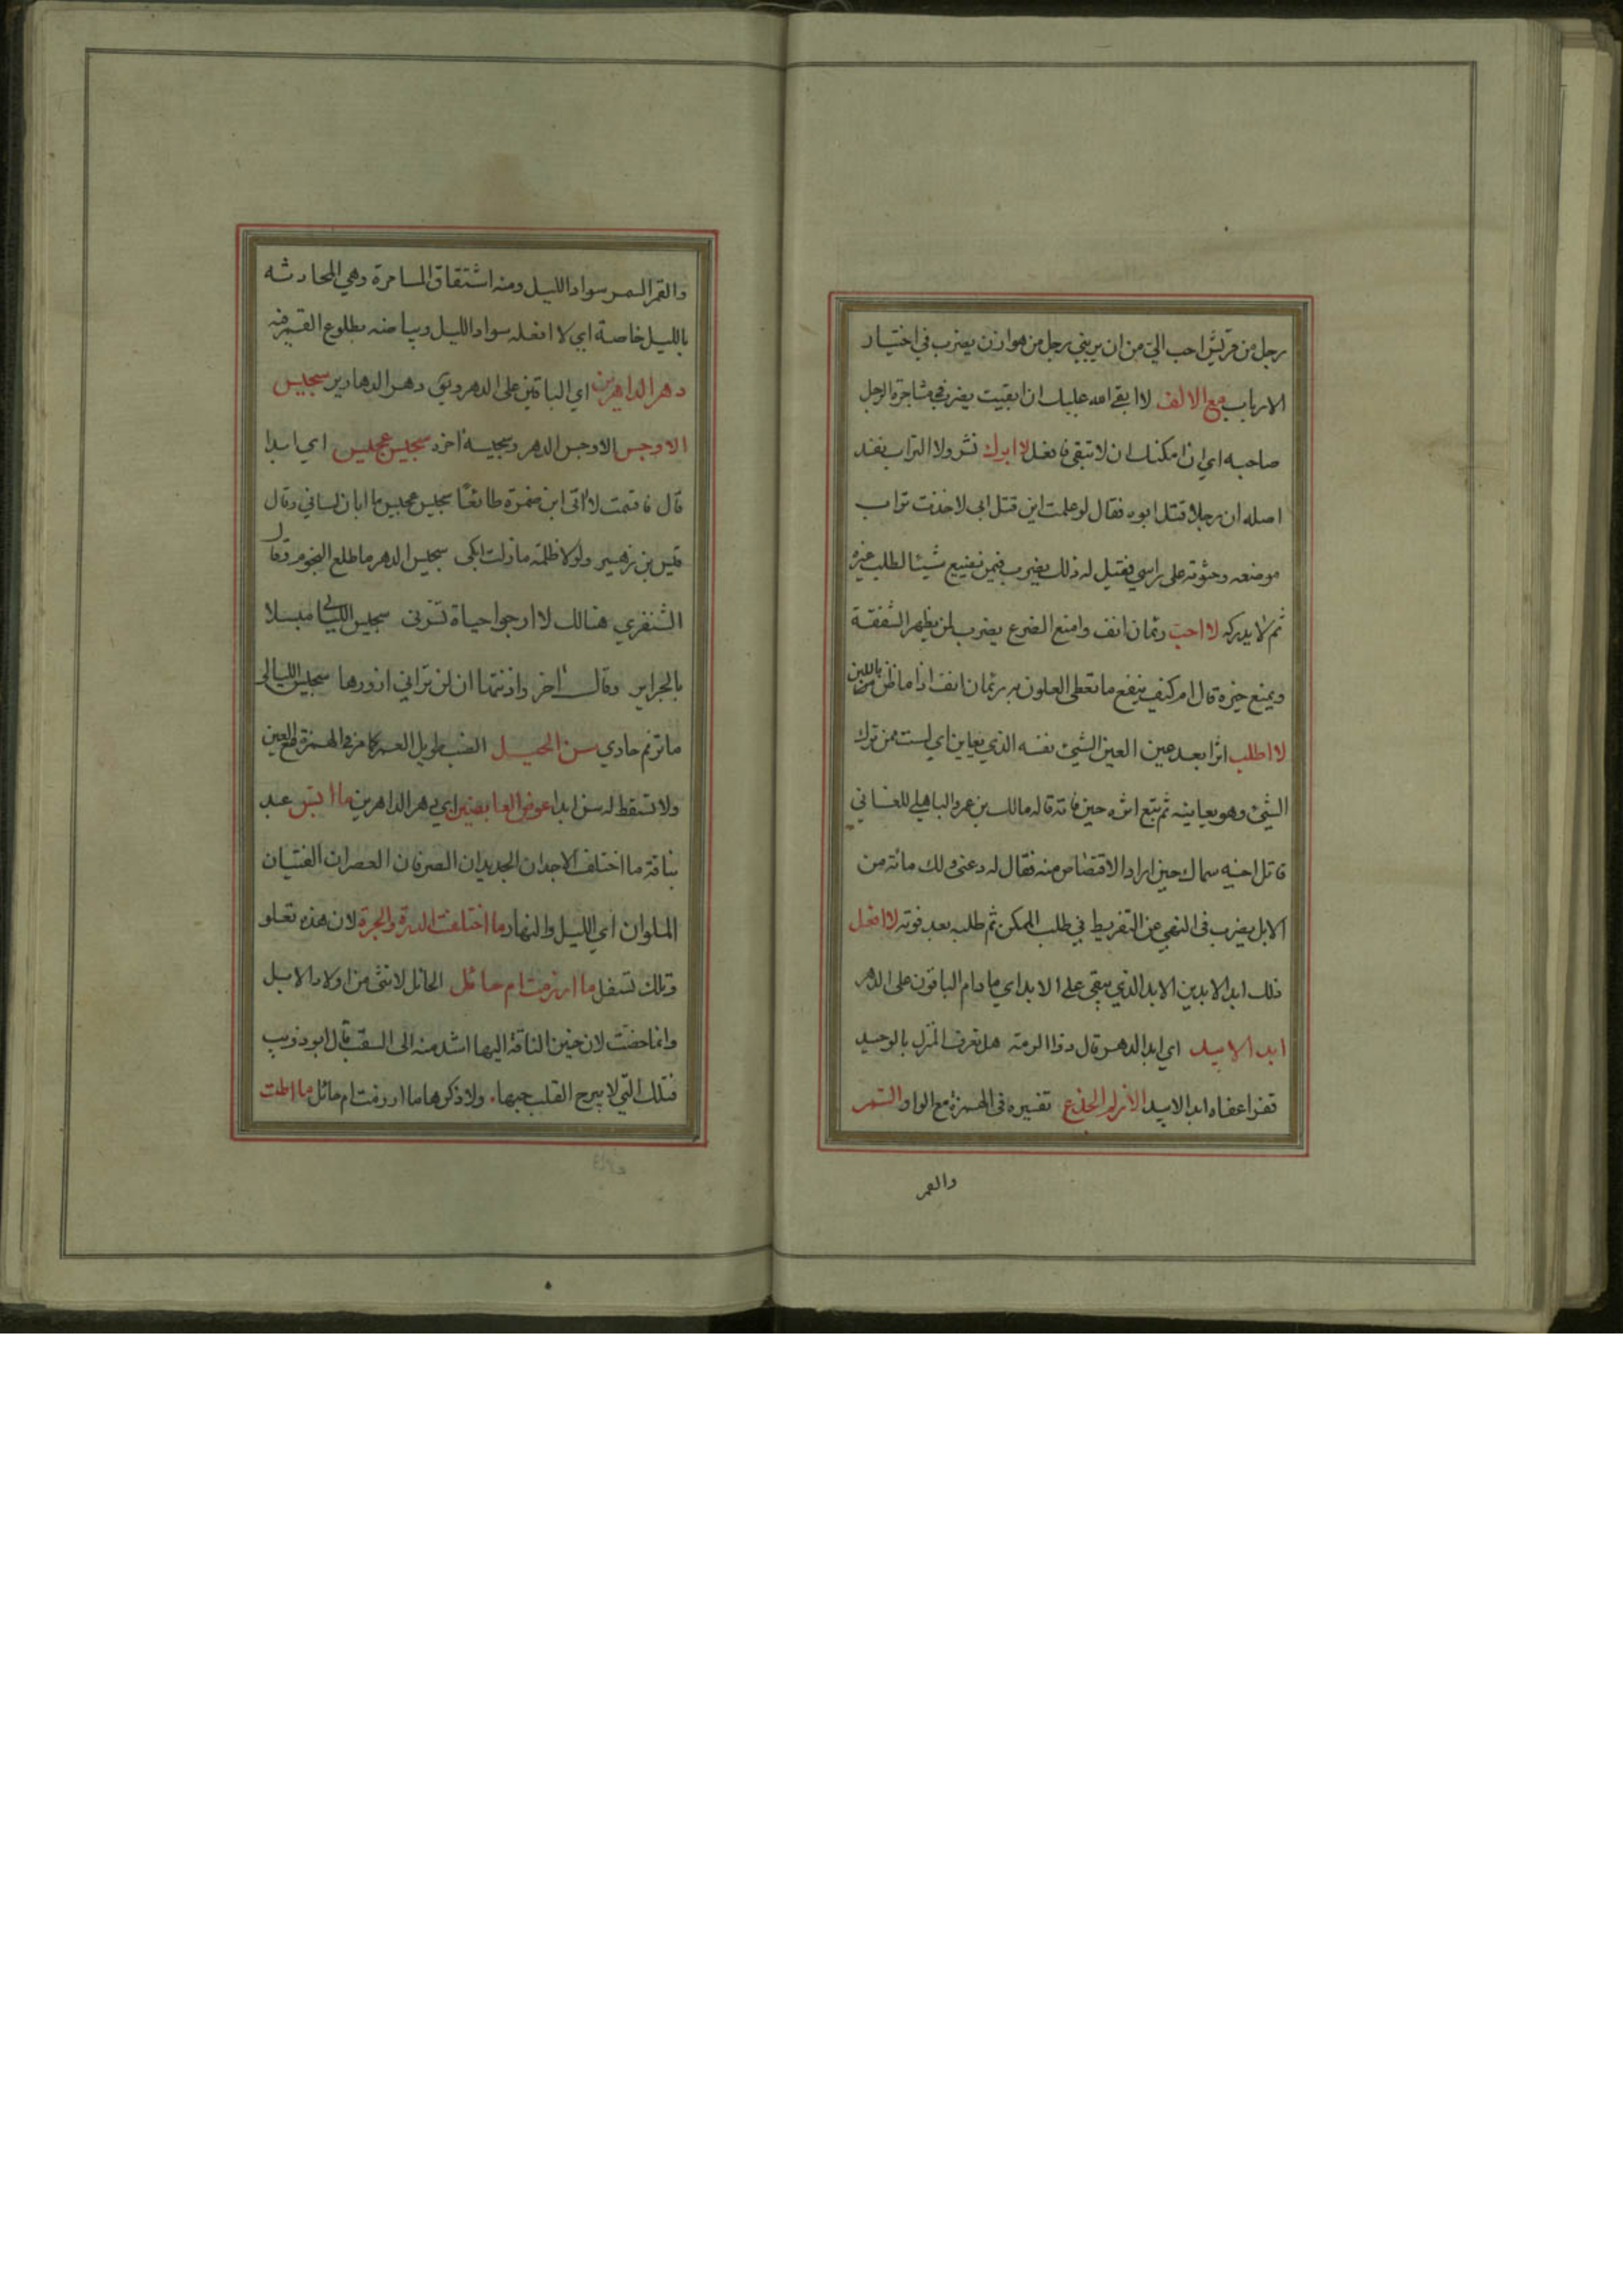 رجل من قريش احب الي من ان يربني رجل من هوازن يضرب في اختيار
الارباب مع الالف لا ابقى الله عليك ان ابقيت يضرب في مشاجرة الرجل
صاحبه اي ان امكنك ان لا تبقى فافعل لا ابوك نشر ولا التراب نفد
اصله ان رجلا قتل ابوه فقال لو علمت اين قتل ابي لاخذت تراب
موضعه وحثوته على راسي فقيل له ذلك يضرب فيمن تضييع شيئا لطلب غيره
ثم لا يدركه لا احب رئمان انف وامنع الضرع يضرب لمن يظهر الشفقة
ويمنع خيره قال ام كيف ينفع ما تعطى العلوق به رئمان انف اذا ما ظن باللبن
لا اطلب اثرا بعد عين العين الشيئ نفسه الذي يعاين اي لست ممن ترك
الشيئ وهو يعاينه ثم يتبع اثره حين فاته قاله مالك بن عمرو الباهلي للغساني
قاتل اخيه سماك حين اراد الاقتصاص منه فقال له دعني ولك مائة من
الابل يضرب في النهي عن التفريط في طلب الممكن ثم طلبه بعد فوته لا افعل
ذلك ابد الابدين الابد الذي يبقى على الابد اي ما دام الباقون على الدهر
ابد الابيد اي ابد الدهر قال ذوا الرمة هل تعرف المنزل بالوحيد
قفرا عفاه ابد الابيد الازلم الجذع تفسيره في الهمزة مع الواو السمر
والقمر
والقمر السمر سواد الليل ومنه اشتقاق المسامرة وهي المحادثه
بالليل خاصة اي لا افعله سواد الليل وبياضه بطلوع القمر فيه
دهر الداهرين اي الباقين على الدهر ويق دهر الدهارير سجيس
الاوجس الاوجس الدهر وسجيسه اخره سجيس عجيس اي ابدا
قال فاقسمت لا اتى ابن ضمرة طائعا سجيس عجيس ما ابان لساني وقال
قيس بن زهير ولولا ظلمه ما زلت ابكى سجيس الدهر ما طلع النجوم وقال
الشنفري هنالك لا ارجوا حياة تسرني سجيس الليالي مبسلا
بالجراير وقال اخر واذنتما ان لن تراني ازورها سجيس الليالي
ما ترنم حادي سن الحسيل الضب طويل العمر كما مر في الهمزة مع العين
ولا تسقط له سن ابدا عوض العايضين اي دهر الداهرين ما ابس عبد
بناقة ما اختلف الاجدان الجديدان الصرفان العصران الفتيان
الملوان اي الليل والنهار ما اختلفت الدرة والجرة لان هذه تعلو
وتلك تسفل ما ارزمت ام حائل الحائل لانثى من اولاد الابل
وانما خصت لان حنين الناقة اليها اشد منه الى السقب قال ابو ذويب
فتلك التي لا يبرح القلب حبها ولا ذكرها ما ارزمت ام حائل ما اطت